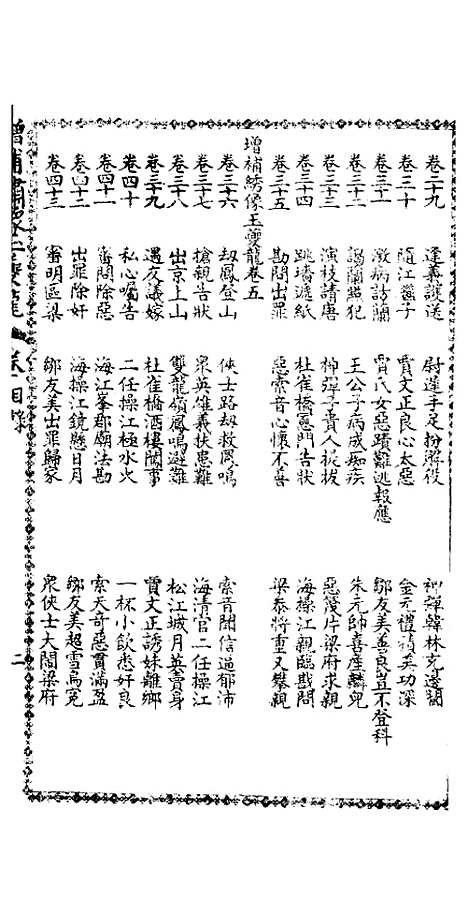 卷二十九 逢義護送 尉遲手足扮解役 神彈韓林充邊關
卷三十 隨江鱉子 賈文正良心太惡 金元禮積英功深
卷三十一 激病訪蘭 賈氏女惡蹟難逃報應 鄒友美善良豈不登科
卷三十二 謁蘭照犯 王公子病成痴疾 朱元帥喜產麟兒
卷三十三 演枝請唐 神彈子貴人提拔 惡篾片梁府求親
卷三十四 跳墻遞紙 杜雀橋惡門告狀 海操江親臨戲問
卷三十五 勘問出罪 惡索音心懷不善 梁泰將重又攀親
增補綉像玉雙龍卷五
卷三十六 刼鳳登山 俠士路刼救鳳鳴 索音聞信追郁沛
卷三十七 搶親告狀 眾英雄義扶患難 海清官二任操江
卷三十八 出京上山 雙龍嶺鳳鳴避難 松江城月英賣身
卷三十九 遇友議嫁 杜雀橋酒樓鬧事 賈文正誘妹離鄉
卷四十 私心囑告 二任操江極水火 一杯小飲悉奸良
卷四十一 審問除惡 海江峯郡廟法勘 索天奇惡貫滿盈
卷四十二 出罪除奸 海操江鏡懸日月 鄒友美超雪烏冤
卷四十三 審明區梁 鄒友美出罪歸家 眾俠士大鬧梁府
目錄
二